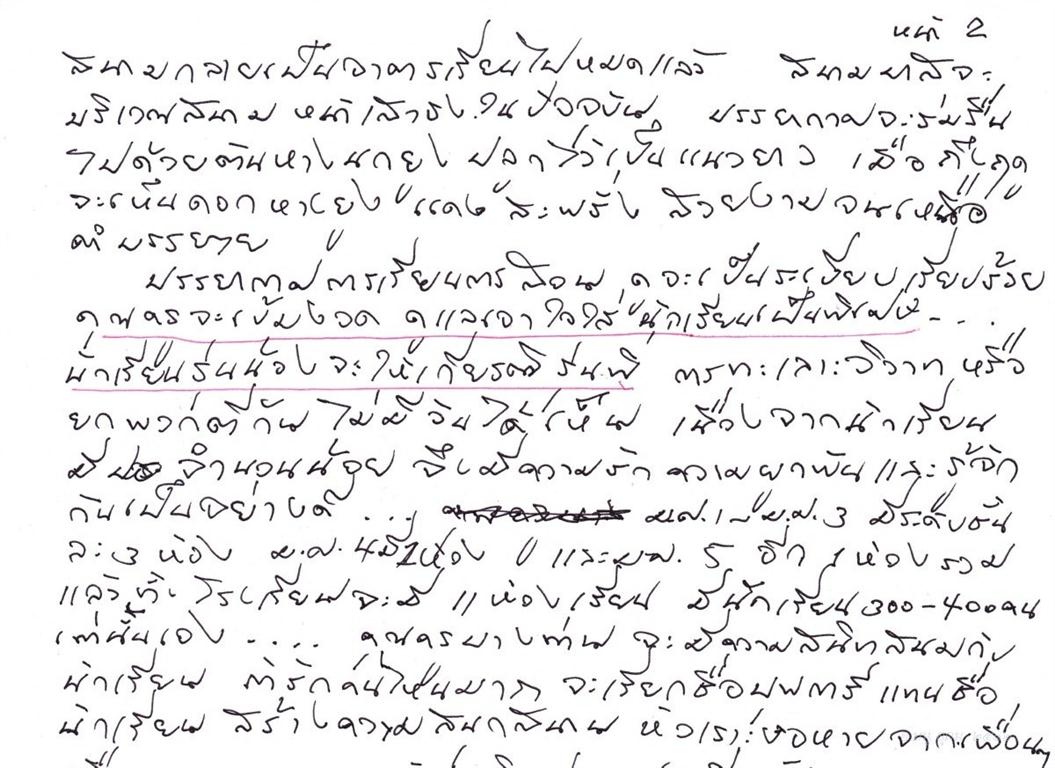 หน้า 2
สนามกลายเป็นอาคารเรียนไปหมดแล้ว สนามหญ้าจะ
บริเวณสนาม หน้าเสาธง ในปัจจุบัน บรรยากาศจะร่มรื่น
ไปด้วยต้นหางนกยูง ปลูกไว้เป็นแนวยาว เมื่อถึงฤดู
จะเห็นดอกหางยูง แดง สะพรั่ง สวยงามจนเหลือ
คำบรรยาย
บรรยากาศการเรียนการสอน ดูจะเป็นระเบียบเรียบร้อย
คุณครูจะเข้มงวด ดูแลเอาใจใส่ นักเรียนเป็นพิเศษ - . . .
นักเรียนรุ่นน้อง จะให้เกียรติ รุ่นพี่ การทะเลาะวิวาท หรือ
ยกพวกตีกัน ไม่มีวันได้เห็น เนื่องจากนักเรียน
มี จำนวนน้อย จึงมีความรัก ความผูกพัน และรู้จัก
กันเป็นอย่างดี ... ม.ศ.1 - ม.ศ.3 มีระดับชั้น
ละ 3 ห้อง ม.ศ. 4 มี 1 ห้อง และ ม.ศ. 5 อีก 1 ห้อง รวม
แล้วทั้งโรงเรียนจะมี 11 ห้องเรียน มีนักเรียน 300-400 คน
เท่านั้นเอง .... คุณครูบางท่าน จะมีความสนิทสนมกับ
นักเรียน ถ้ารักคนไหนมากๆ จะเรียกชื่อบุพการี แทนชื่อ
นักเรียน สร้างความสนุกสนาน หัวเราะ จากเพื่อนๆ